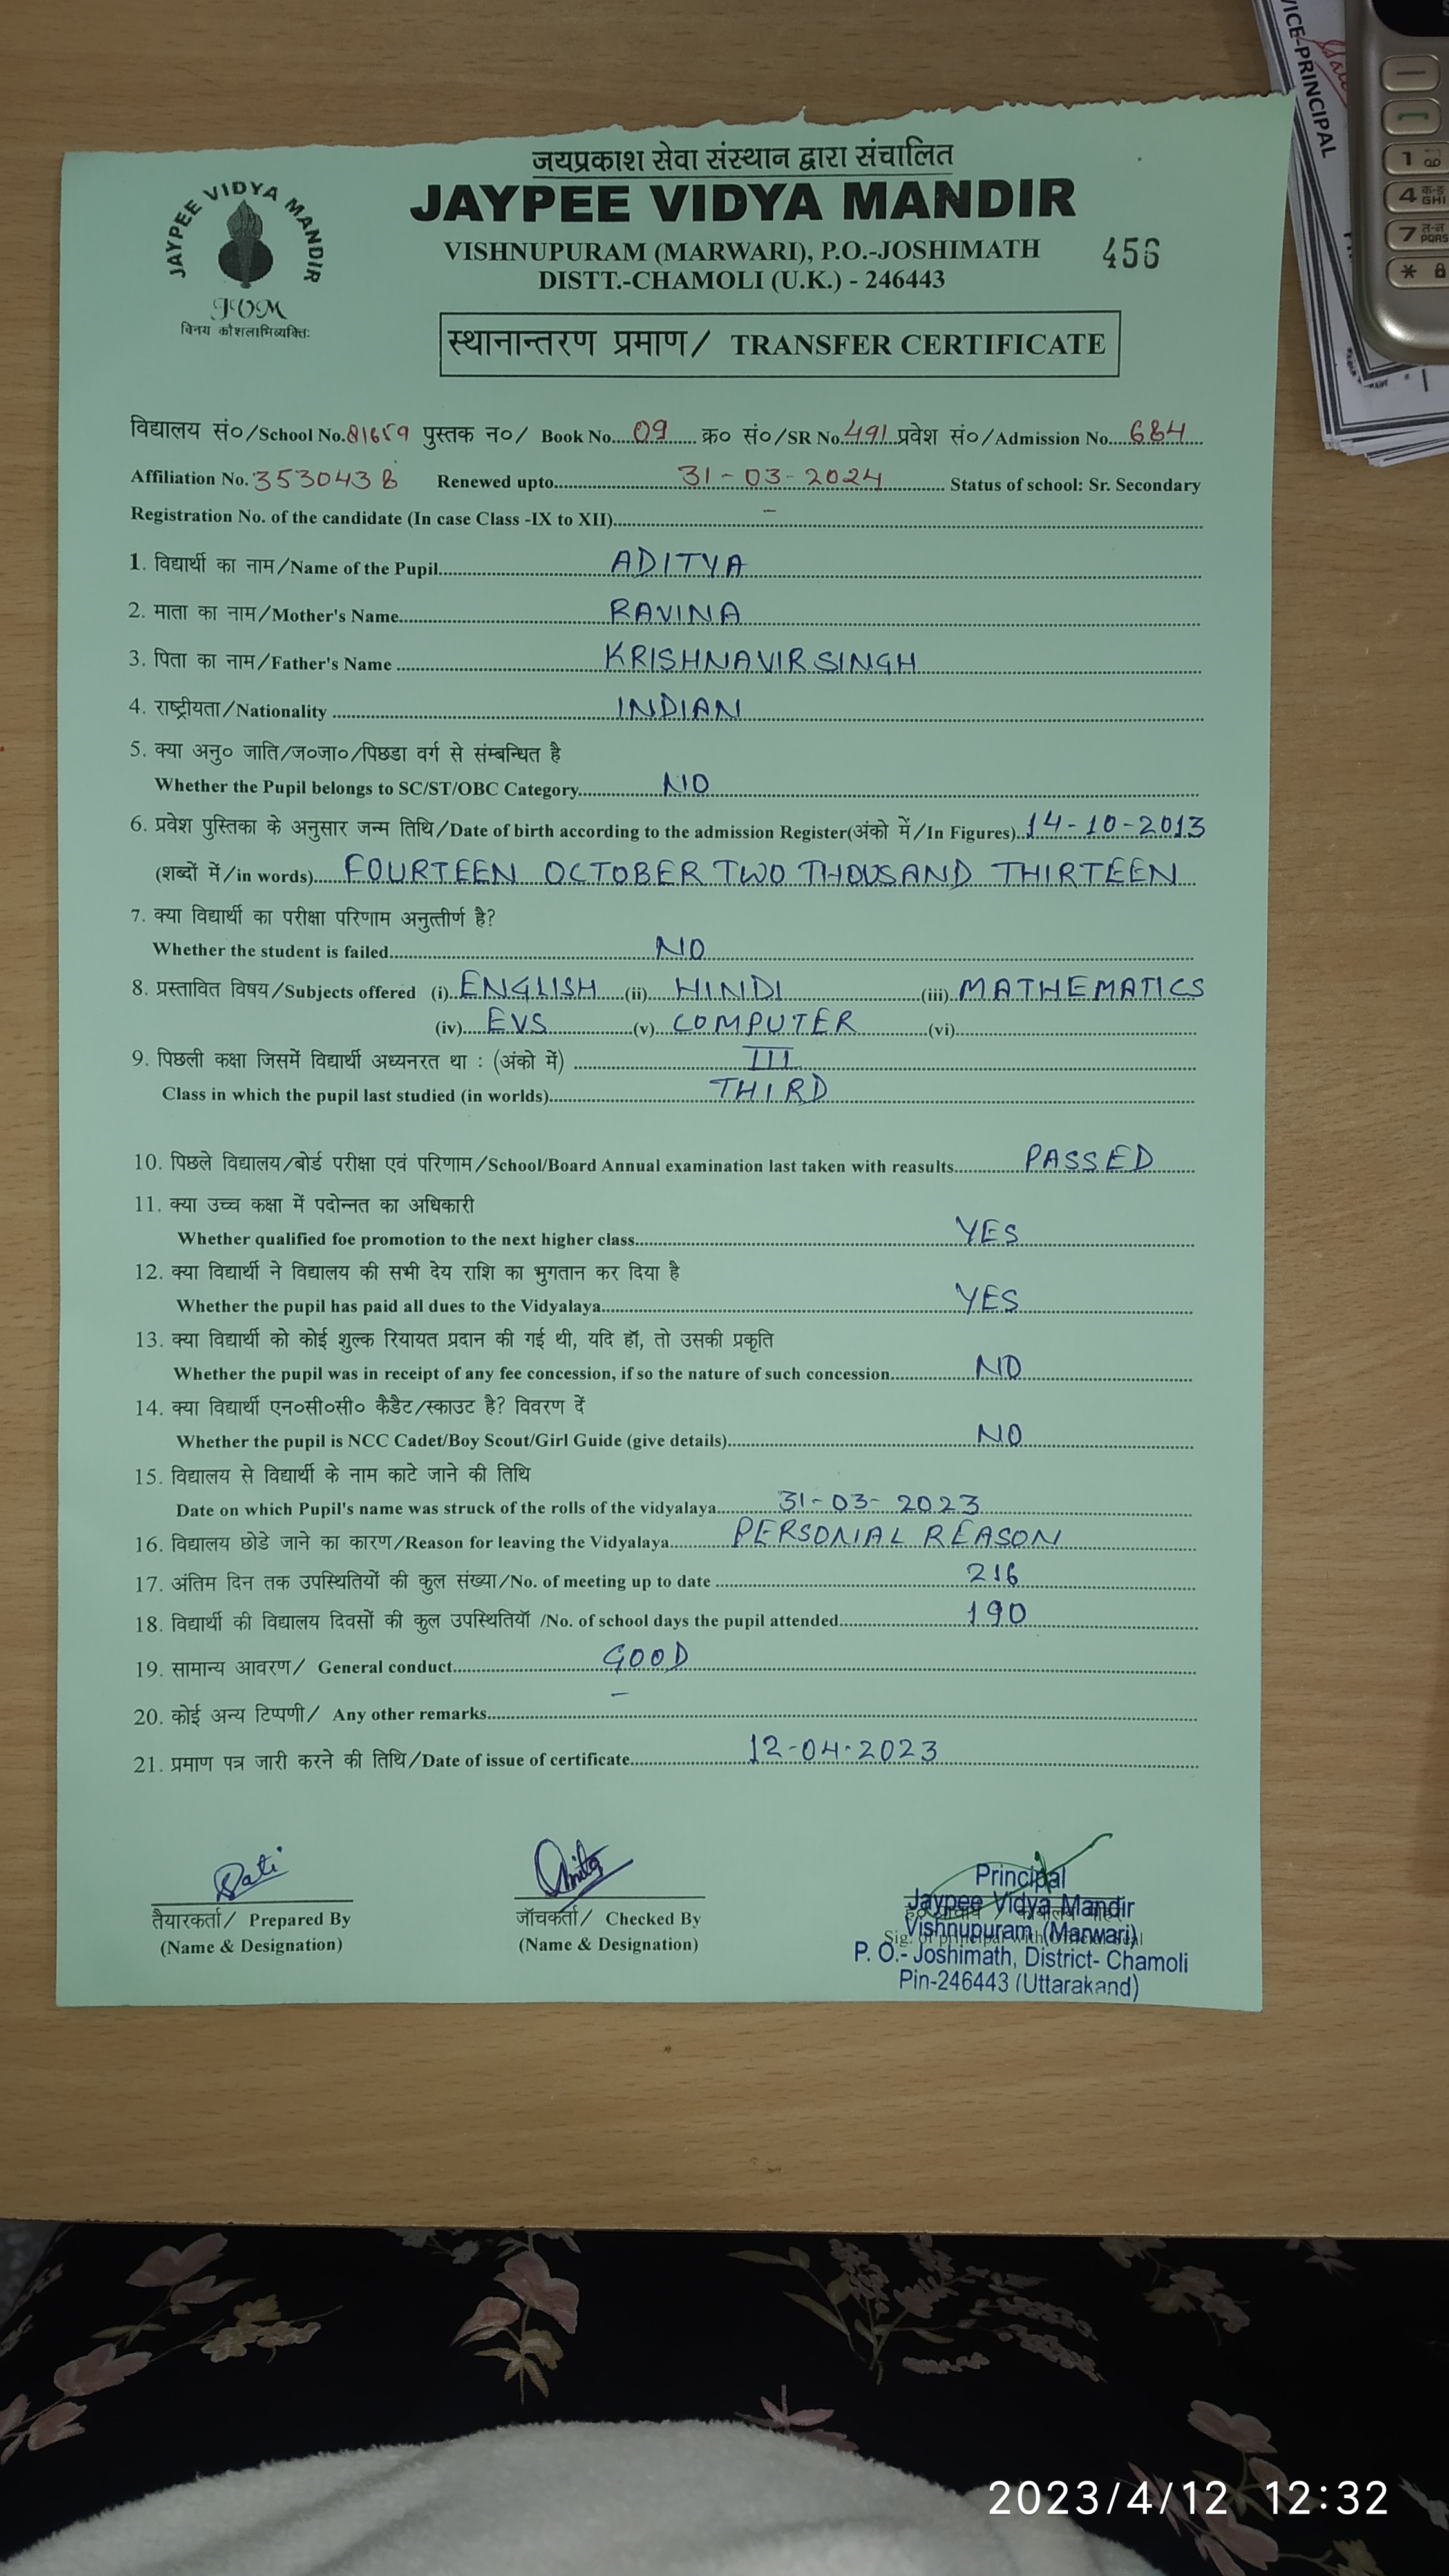 जयप्रकाश सेवा संस्थान द्वारा संचालित
JAYPEE VIDYA MANDIR
JAYPEE VIDYA MANDIR
JVM
विनय कौशलाभिव्यक्तिः
VISHNUPURAM (MARWARI), P.O.-JOSHIMATH
456
DISTT.-CHAMOLI (U.K.) - 246443
स्थानान्तरण प्रमाण/ TRANSFER CERTIFICATE
विद्यालय सं०/School No. 81659 पुस्तक न०/ Book No. 09 क्र० सं०/SR No. 491 प्रवेश सं०/Admission No. 684
Affiliation No. 3530438 Renewed upto 31-03-2024 Status of school: Sr. Secondary
Registration No. of the candidate (In case Class -IX to XII) -
1. विद्यार्थी का नाम/Name of the Pupil ADITYA
2. माता का नाम/Mother's Name RAVINA
3. पिता का नाम/Father's Name KRISHNAVIR SINGH
4. राष्ट्रीयता/Nationality INDIAN
5. क्या अनु० जाति/ज०जा०/पिछडा वर्ग से संम्बन्धित है
Whether the Pupil belongs to SC/ST/OBC Category NO
6. प्रवेश पुस्तिका के अनुसार जन्म तिथि/Date of birth according to the admission Register(अंको में/In Figures) 14-10-2013
(शब्दों में/in words) FOURTEEN OCTOBER TWO THOUSAND THIRTEEN
7. क्या विद्यार्थी का परीक्षा परिणाम अनुत्तीर्ण है?
Whether the student is failed NO
8. प्रस्तावित विषय/Subjects offered (i) ENGLISH (ii) HINDI (iii) MATHEMATICS
(iv) EVS (v) COMPUTER (vi)
9. पिछली कक्षा जिसमें विद्यार्थी अध्यनरत था : (अंको में) III
Class in which the pupil last studied (in worlds) THIRD
10. पिछले विद्यालय/बोर्ड परीक्षा एवं परिणाम/School/Board Annual examination last taken with reasults PASSED
11. क्या उच्च कक्षा में पदोन्नत का अधिकारी
Whether qualified foe promotion to the next higher class YES
12. क्या विद्यार्थी ने विद्यालय की सभी देय राशि का भुगतान कर दिया है
Whether the pupil has paid all dues to the Vidyalaya YES
13. क्या विद्यार्थी को कोई शुल्क रियायत प्रदान की गई थी, यदि हॉ, तो उसकी प्रकृति
Whether the pupil was in receipt of any fee concession, if so the nature of such concession NO
14. क्या विद्यार्थी एन०सी०सी० कैडैट/स्काउट है? विवरण दें
Whether the pupil is NCC Cadet/Boy Scout/Girl Guide (give details) NO
15. विद्यालय से विद्यार्थी के नाम काटे जाने की तिथि
Date on which Pupil's name was struck of the rolls of the vidyalaya 31-03-2023
16. विद्यालय छोडे जाने का कारण/Reason for leaving the Vidyalaya PERSONIAL REASON
17. अंतिम दिन तक उपस्थितियों की कुल संख्या/No. of meeting up to date 216
18. विद्यार्थी की विद्यालय दिवसों की कुल उपस्थितियॉ /No. of school days the pupil attended 190
19. सामान्य आवरण/ General conduct GOOD
20. कोई अन्य टिप्पणी/ Any other remarks -
21. प्रमाण पत्र जारी करने की तिथि/Date of issue of certificate 12-04-2023
तैयारकर्ता/ Prepared By
(Name & Designation)
जॉचकर्ता/ Checked By
(Name & Designation)
Sig. of principal with Official Seal
Principal
Jaypee Vidya Mandir
Vishnupuram (Marwari)
P. O.- Joshimath, District- Chamoli
Pin-246443 (Uttarakand)
VICE-PRINCIPAL
1
4 GHI
7 PQRS
*
2023/4/12 12:32